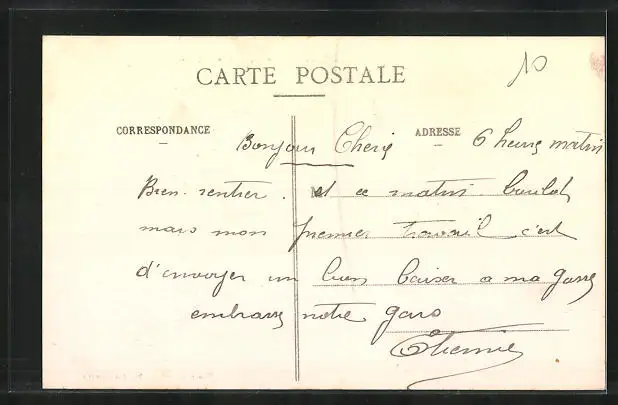 10
CARTE POSTALE
CORRESPONDANCE
ADRESSE
Bonjour Cherie 6 heures matin
Bien rentrer. et ce matin boulot
mais mon premier travail c'est
d'envoyer un bon baiser a ma gosse
embrasse notre gars
Etienne